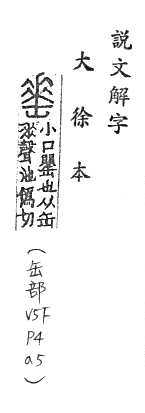 說文解字
大徐本
小口罌也从缶
𠂹聲池僞切
(缶部
V5F
P4
a5)